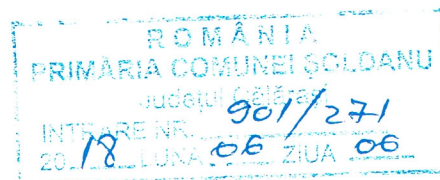 ROMÂNIA
PRIMĂRIA COMUNEI ŞOLDANU
Judeţul Călăraşi
INTRARE NR. 901/271
2018 LUNA 06 ZIUA 06